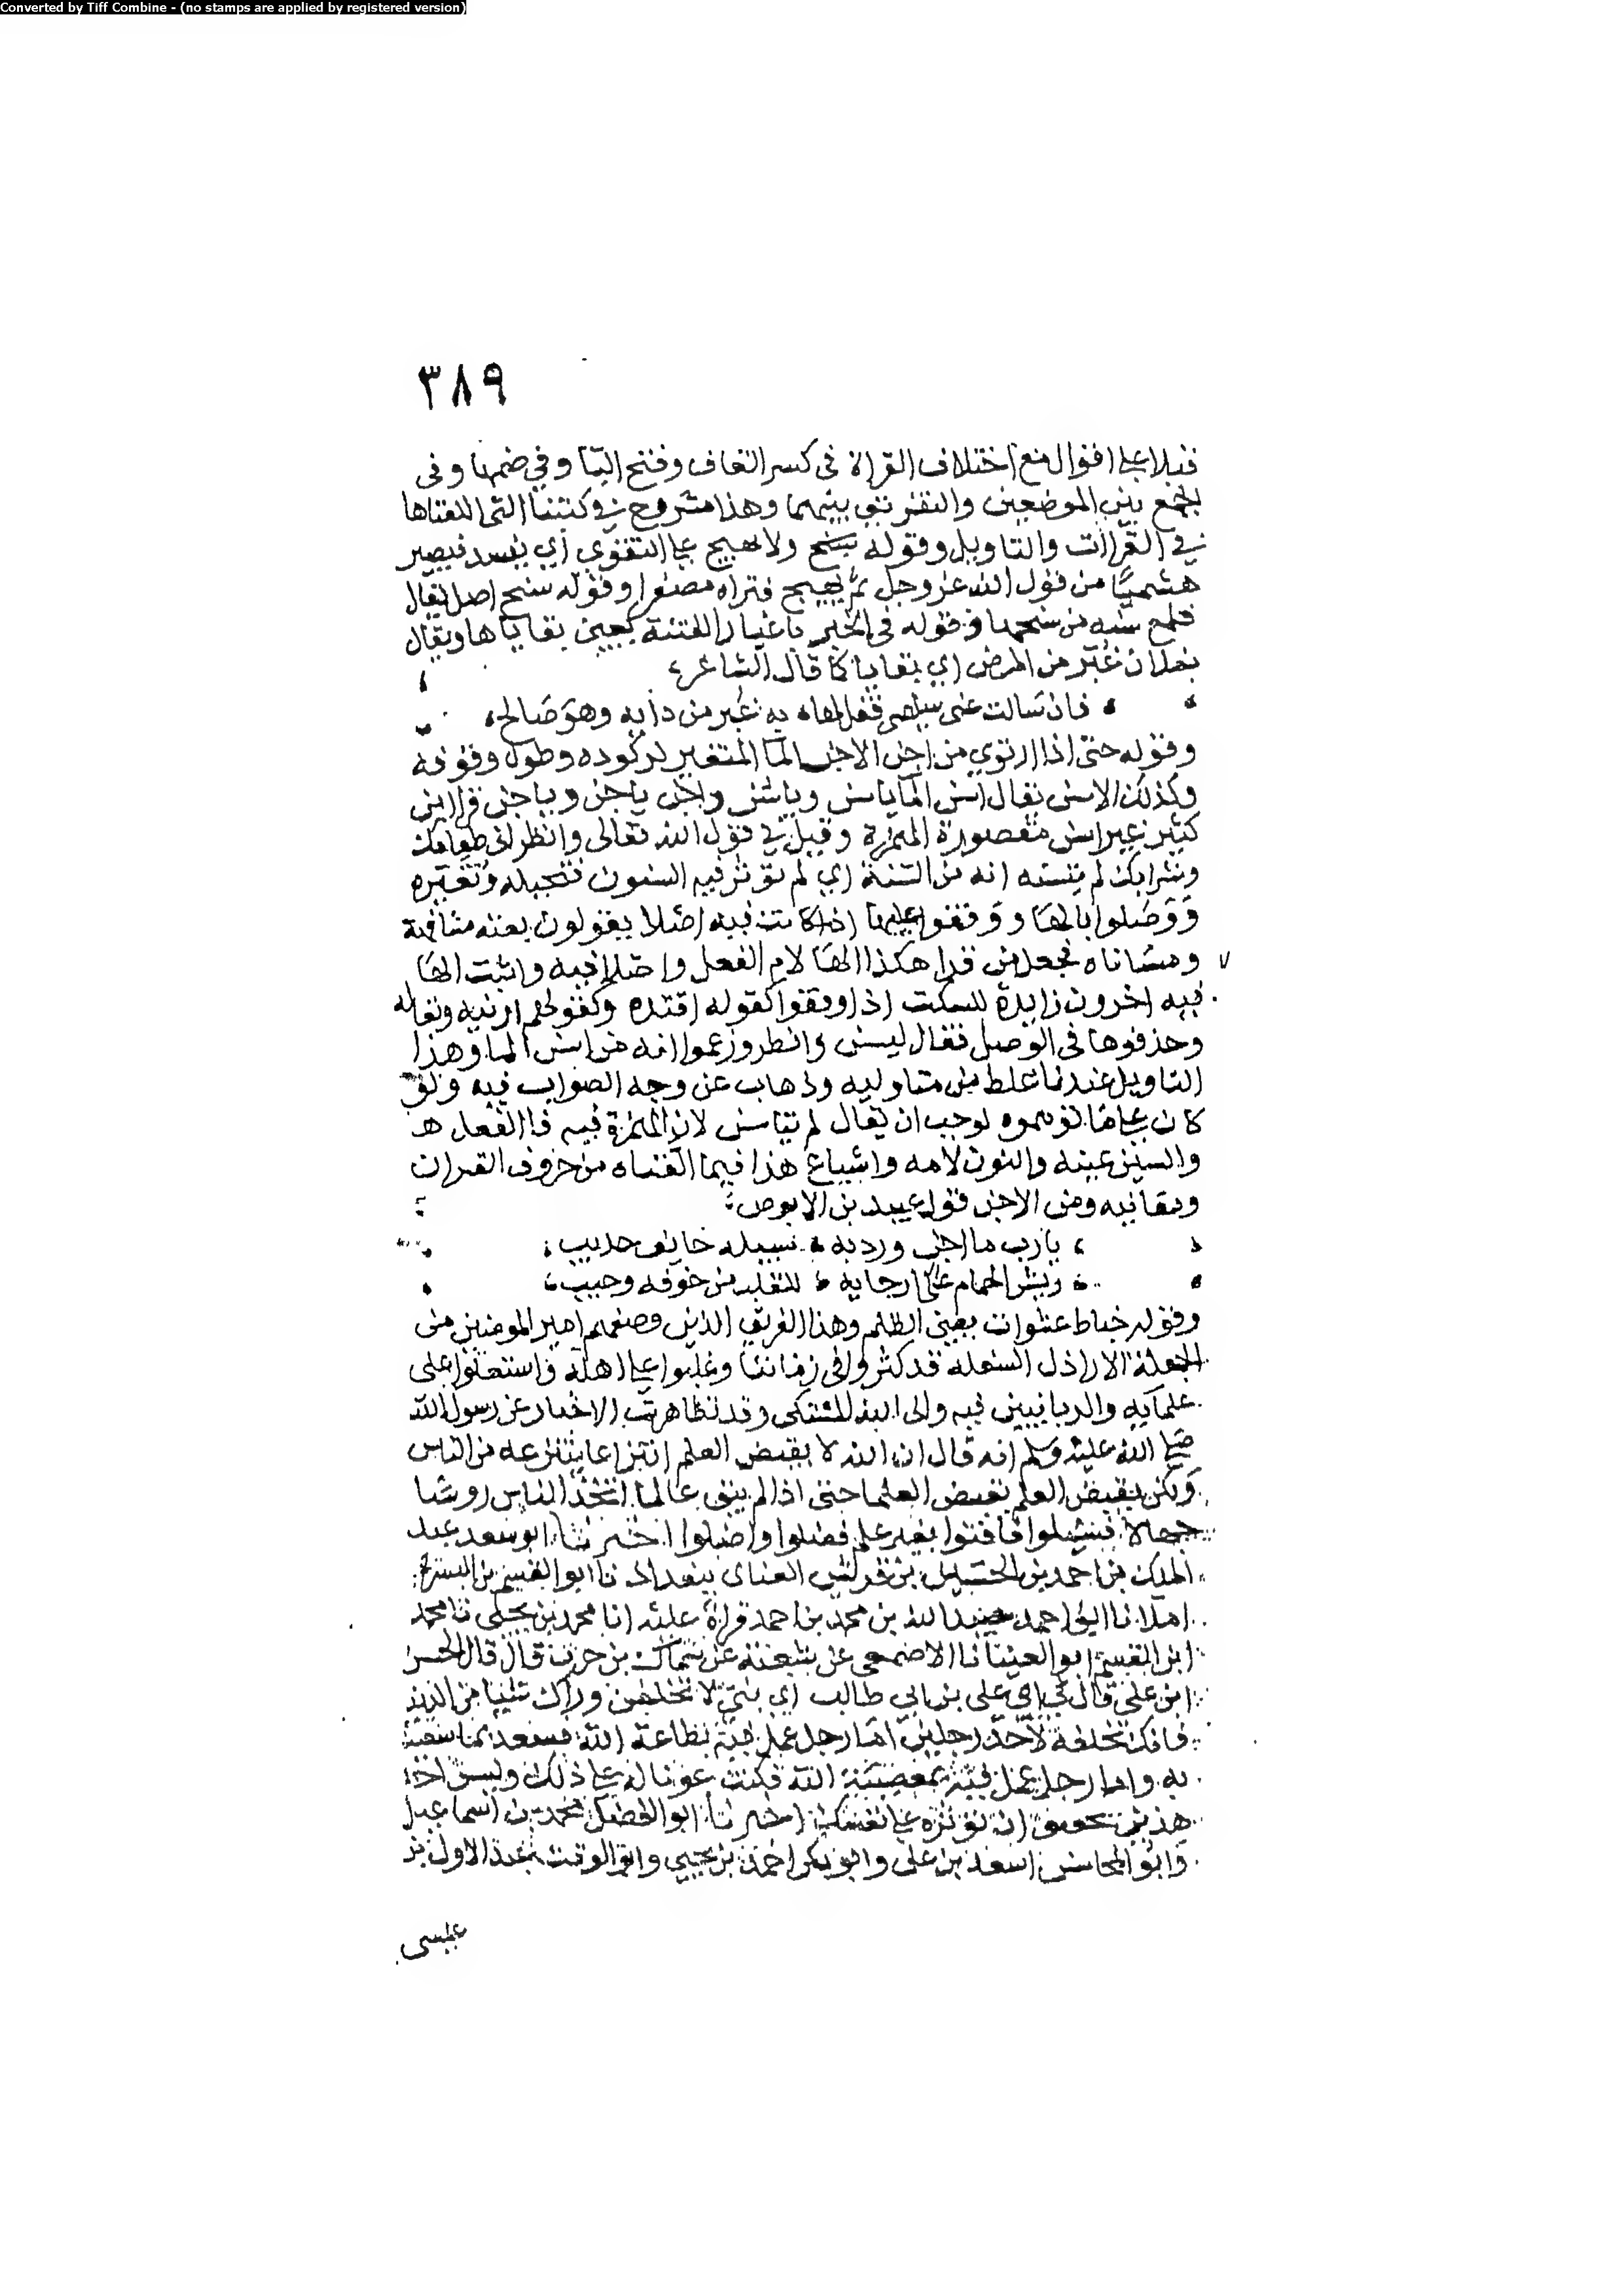 Converted by Tiff Combine - (no stamps are applied by registered version)
٣٨٩
اختلاف القراة فى كسر القاف وفتح اليا وفي ضمها وفى
الجمع بين الموضعين والتفريق بينهما وهذا مشروح في كتبنا التى الفناها
في القراات والتاويل وقوله ولا يهيج على التقوي أي يفسد فيصير
هشيما من قول الله عز وجل ثم يهيج فتراه مصفرا وقوله سنخ اصل يقال
قلع سنه من سنخها وقوله فى الخبر باغبار الفتنة يعني بقاياها ويقال
بفلان غبر من المرض اي بقايا كما قال الشاعر
فان سالت عنى سليمى فقل لها به غبر من دايه وهو صالح
وقوله حتى اذا ارتوي من اجن الاجن الما المتغير لركوده وطول وقوفه
وكذلك الاسن يقال اسن الما ياسن وياسن واجن ياجن وياجن قرا ابن
كثير غير اسن مقصورة الهمزة وقيل في قول الله تعالى وانظر الى طعامك
وشرابك لم يتسنه انه من السنة اي لم تؤثر فيه السنون فتحيله وتغيره
ووصلوا بالها ووقفوا عليها اذ كانت فيه اصلا يقولون بعته مسانهة
ومساناه فجعل من قرا هكذا الها لام الفعل واصلا فيه واثبت الها
فيه اخرون زايدة للسكت اذا وقفوا كقوله اقتده وكقولهم ارنيه وتعاله
وحذفوها فى الوصل وانظر وزعموا انه من اسن الما وهذا
التاويل عندنا غلط من متاوليه وذهاب عن وجه الصواب فيه ولو
كان على ما توهموه لوجب ان يقال لم يتاسن لان الهمزة فيه فا الفعل
والسين عينه والنون لامه واشباع هذا فيما الفناه من حروف القران
ومعانيه ومن الاجن قول عبيد بن الابرص
يا رب ما اجن وردته سبيله خايف جديب
ريش الحمام على ارجايه للقلب من خوفه وجيب
وقوله خباط عشوات يعني الظلم وهذا الفريق الذين وصفهم امير المومنين من
الجهلة الاراذل السفلة قد كثروا فى زماننا وغلبوا على اهله واستعلوا على
علمايه والربانيين فيه والى الله المشتكى وقد تظاهرت الاخبار عن رسول الله
صلى الله عليه وسلم انه قال ان الله لا يقبض العلم انتزاعا ينتزعه من الناس
ولكن يقبض العلم بقبض العلما حتى اذا لم يبق عالما اتخذ الناس روسا
جهالا فسئلوا فافتوا بغير علم فضلوا واضلوا اخبرنا ابو سعد عبد
الملك بن احمد بن الحسين بن ببغداد نا ابو القسم بن البسري
املا نا ابو احمد عبيدالله بن محمد بن احمد قراة عليه انا محمد بن يحيى نا محمد
ابن القسم ابو العينا نا الاصمعي عن شعبة عن سماك بن حرب قال قال الحسن
ابن علي قال لي ابي علي بن ابي طالب اي بني لا تخلفن وراك شيا من الدنيا
فانك تخلفه لاحد رجلين اما رجل عمل فيه بطاعة الله فسعد بما شقيت
به واما رجل عمل فيه بمعصية الله فكنت عونا له على ذلك وليس احد
هذين بحقيق ان تؤثره على نفسك اخبرنا ابو الفضل محمد بن اسماعيل
وابو المحاسن اسعد بن على وابو بكر احمد بن يحيى وابو الوقت عبد الاول بن
عيسى